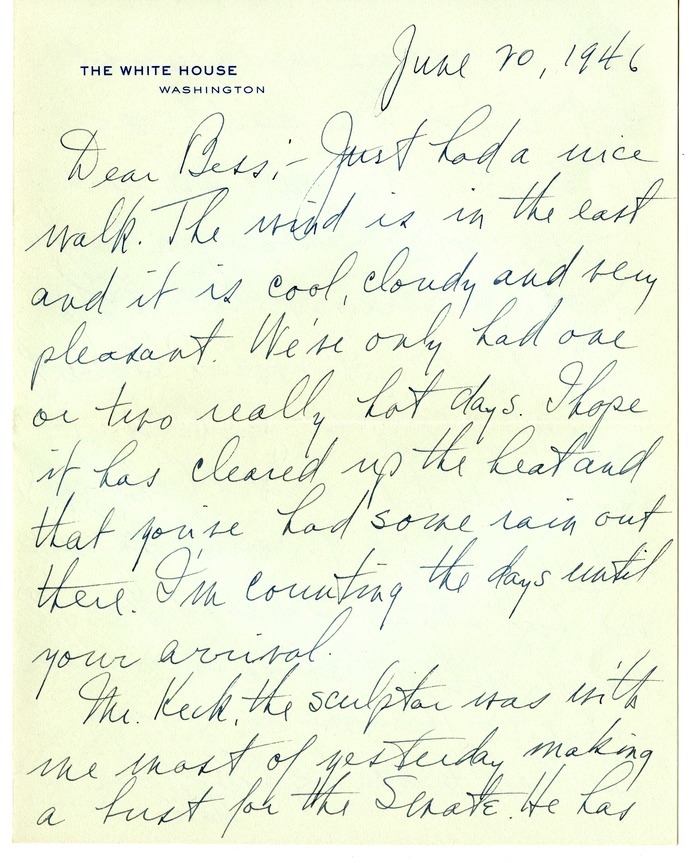 THE WHITE HOUSE
WASHINGTON
June 20, 1946
Dear Bess;- Just had a nice
walk. The wind is in the east
and it is cool, cloudy and very
pleasant. We've only had one
or two really hot days. I hope
it has cleared up the heat and
that you've had some rain out
there. I'm counting the days until
your arrival.
Mr. Keck, the sculptor was with
me most of yesterday making
a bust for the Senate. He has